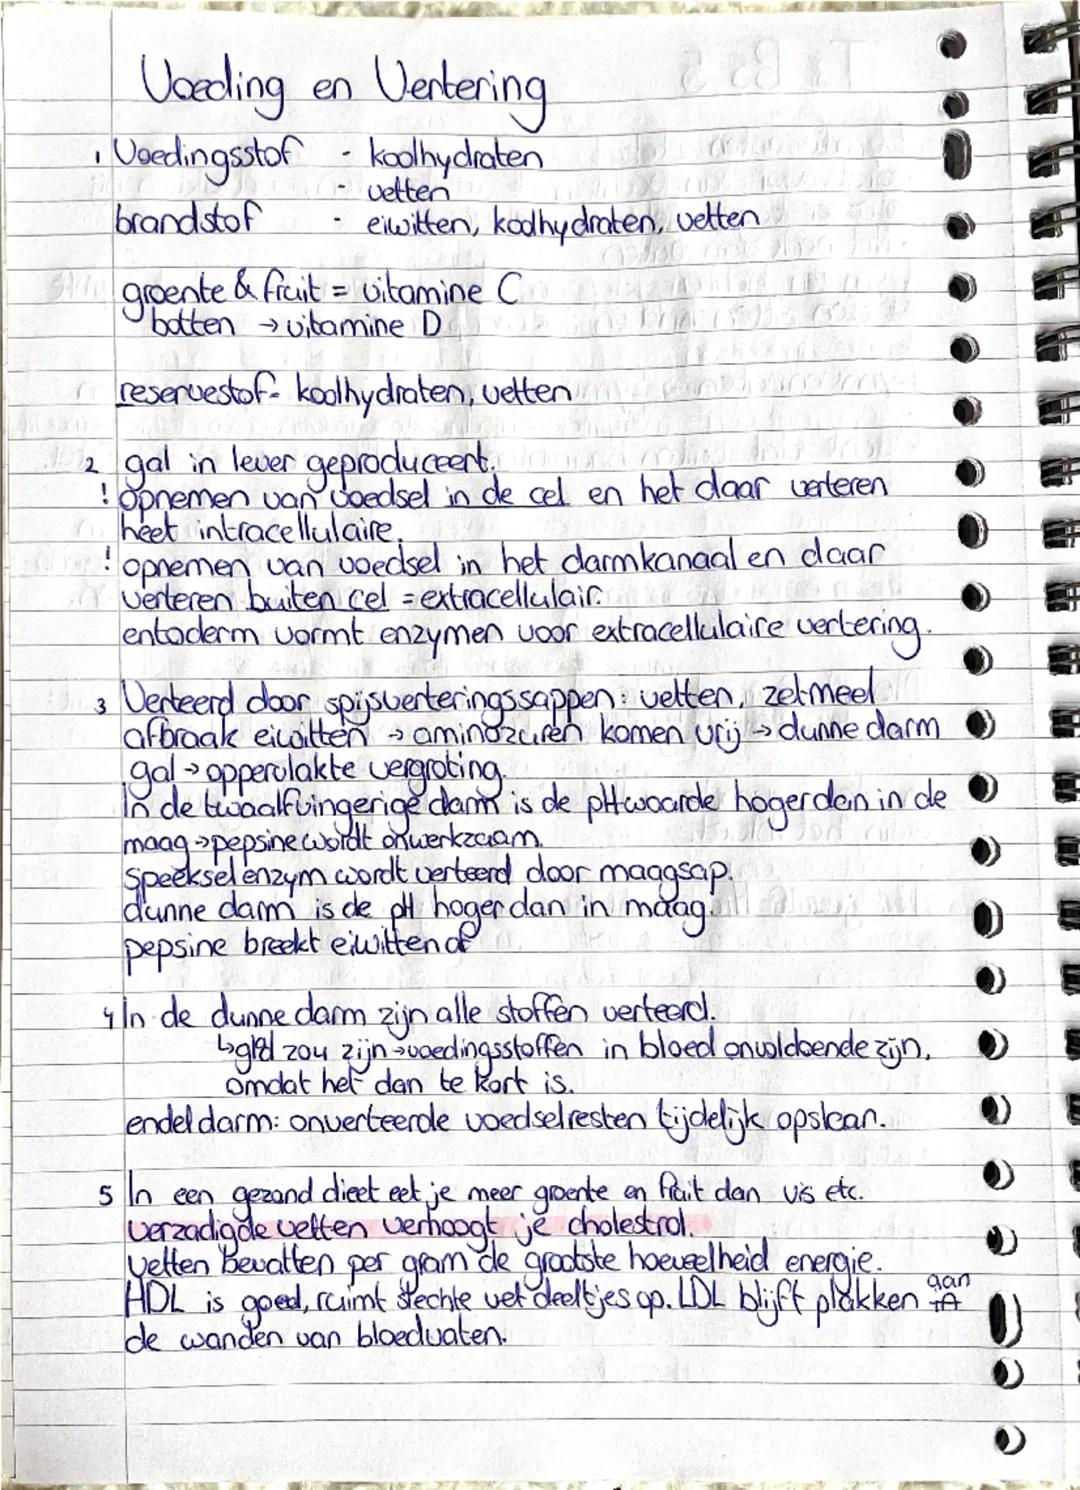 Voeding en Vertering
1 Voedingsstof - koolhydraten
- vetten
brandstof - eiwitten, koolhydraten, vetten
groente & fruit = vitamine C
botten → vitamine D
reservestof - koolhydraten, vetten
2 gal in lever geproduceert.
! opnemen van voedsel in de cel en het daar verteren
heet intracellulaire.
! opnemen van voedsel in het darmkanaal en daar
verteren buiten cel = extracellulair.
entoderm vormt enzymen voor extracellulaire vertering.
3 Verteerd door spijsverteringssappen: vetten, zetmeel
afbraak eiwitten → aminozuren komen vrij → dunne darm
gal → oppervlakte vergroting.
In de twaalfvingerige darm is de pH waarde hoger dan in de
maag → pepsine wordt onwerkzaam.
Speeksel enzym wordt verteerd door maagsap.
dunne darm is de pH hoger dan in maag.
pepsine breekt eiwitten af
4 In de dunne darm zijn alle stoffen verteerd.
↳ glad zou zijn → voedingsstoffen in bloed onvoldoende zijn,
omdat het dan te kort is.
endeldarm: onverteerde voedselresten tijdelijk opslaan.
5 In een gezond dieet eet je meer groente en fruit dan vis etc.
verzadigde vetten verhoogt je cholestrol.
vetten bevatten per gram de grootste hoeveelheid energie.
HDL is goed, ruimt slechte vet deeltjes op. LDL blijft plakken aan
de wanden van bloedvaten.